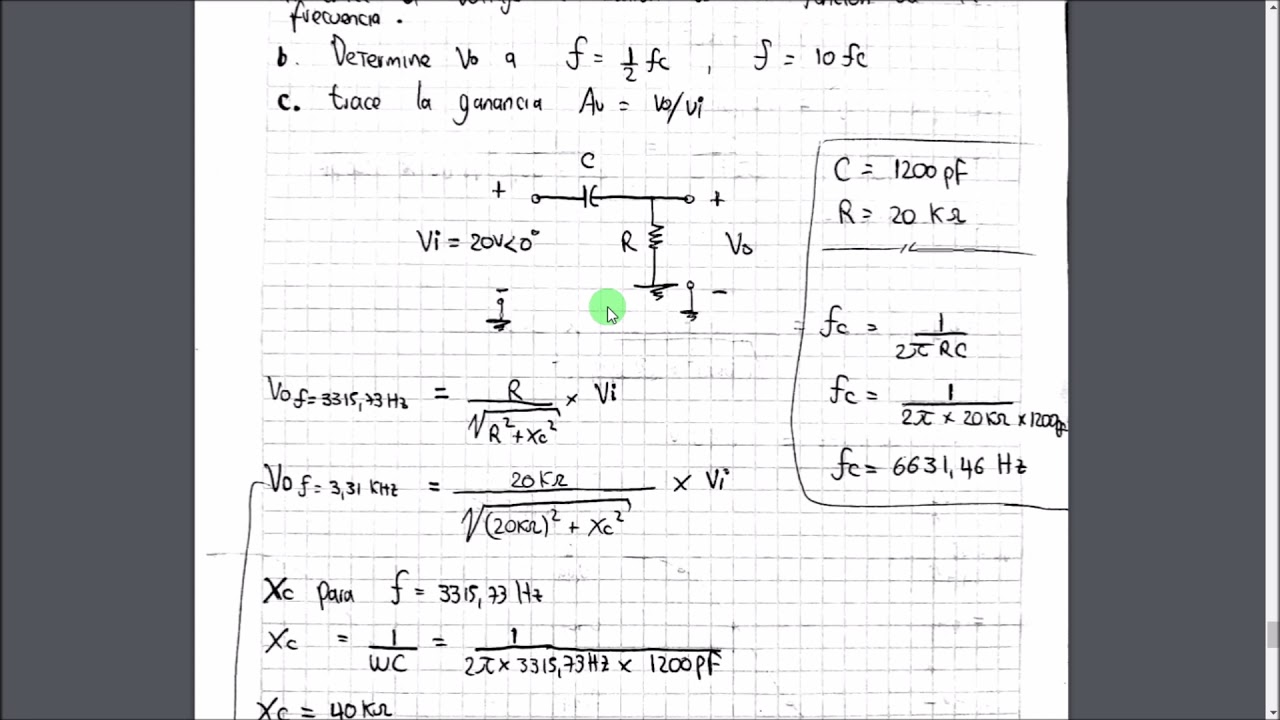 frecuencia.
b. Determine Vo a f = 1/2 fc , f = 10 fc
c. trace la ganancia Av = Vo/Vi
C
+ +
Vi = 20V<0° R Vo
- -
C = 1200 pF
R = 20 KΩ
fc = 1/2π RC
fc = 1/2π × 20KΩ × 1200p
fc = 6631,46 Hz
Vo f=3315,73Hz = R/√R²+Xc² × Vi
Vo f=3,31 KHz = 20KΩ/√(20KΩ)² + Xc² × Vi
Xc para f = 3315,73 Hz
Xc = 1/WC = 1/2π × 3315,73Hz × 1200pF
Xc = 40KΩ